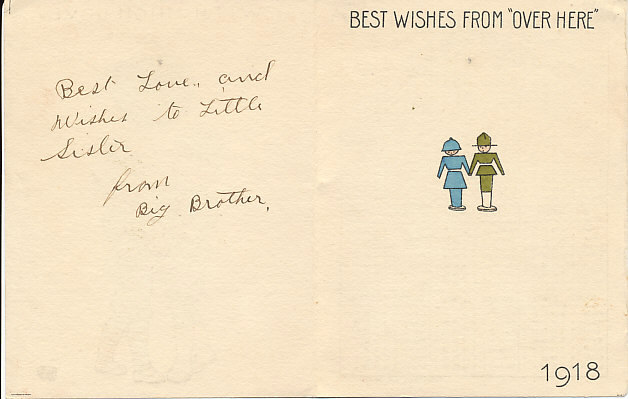 Best Love, and
Wishes to Little
Sister
from
Big Brother,
BEST WISHES FROM "OVER HERE"
1918